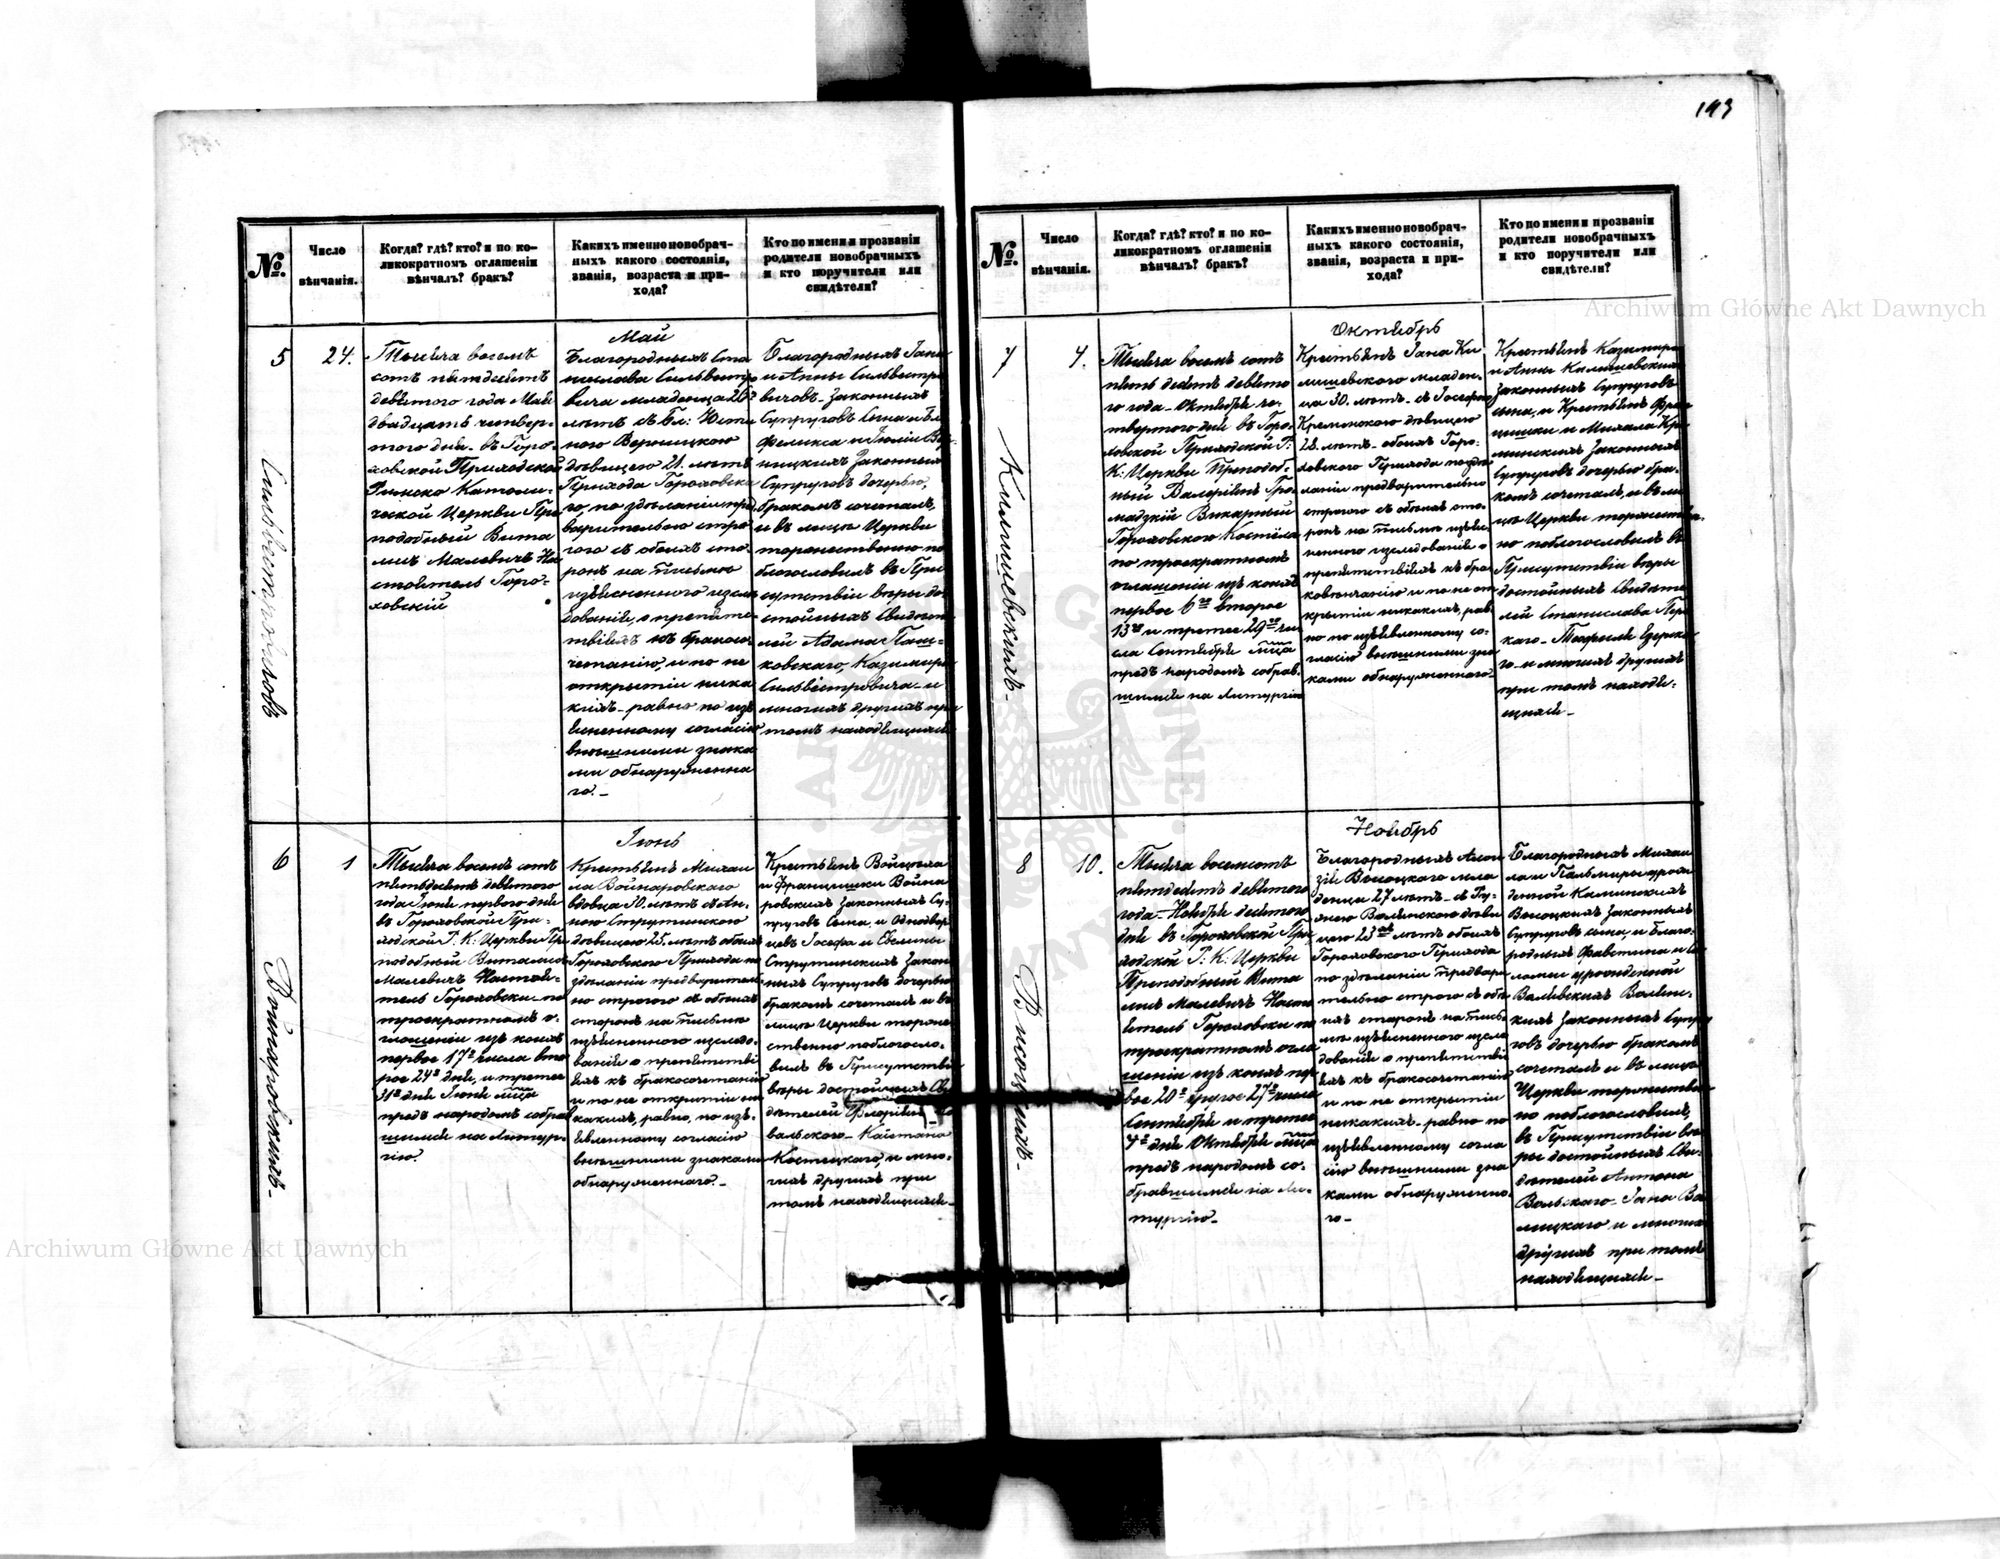 193
№.
Число
вѣнчанія.
Когда? гдѣ? кто? и по ко-
ликократномъ оглашеніи
вѣнчалъ? бракъ?
Какихъ именно новобрач-
ныхъ какого состоянія,
званія, возраста и при-
хода?
Кто по имени и прозваніи
родители новобрачныхъ
и кто поручители или
свидѣтели?
5
24.
Сильвестровичовъ
Тысяча восемь
сотъ пятдесятъ
девятого года Мая
двадцать четвер-
того дня въ Горо-
ховской Приходской
Римско Католи-
ческой Церкви Пре
подобный Вита
лисъ Малевичъ На
стоятель Горо-
ховскій
Май
Благородныхъ Ста
нислава Сильвестро
вича младенца 26
лѣтъ съ Бл: Юсти
ною Верницкою
дѣвицею 21. лѣтъ
Прихода Горохowска
го, по здѣланіи пред
варительно стро
гого съ обоихъ сто-
ронъ на письмѣ
изъясненного изслѣ
дованія о препятс
твіяхъ къ бракосо
четанію, и по не
открытіи ника
кихъ равно по изъ
явленному согласію
внѣшними знака
ми обнаруженна
го.-
Благородныхъ Іана
и Анны Сильвестро
вичовъ Законныхъ
Супруговъ Сына и Бл.
Феликса и Юліи Вер
ницкихъ Законныхъ
Супруговъ дочерью,
бракомъ сочеталъ,
и въ лицѣ Церкви
торжественно по
благословилъ въ При
сутствіи вѣры до
стойныхъ Свидѣте
лей Адама Паш-
ковскаго, Казимира
Сильвестровича и
многихъ другихъ при
томъ находящихся
6
1
Войнаровскихъ-
Тысяча восемь сотъ
пятьдесятъ девятого
года Іюня первого дня
въ Гороховской При-
ходской Р. К. Церкви Пре
подобный Виталисъ
Малевичъ Настоя-
тель Гороховски по
троекратномъ о-
глашеніи изъ коихъ
первое 17го числа вто
рое 24го дня, и третее
31го дня Іюня мца
предъ народомъ собрав
шимся на Литур-
гію.
Іюнь
Крестьянъ Михаи
ла Войнаровскаго
вдовца 30. лѣтъ съ Ан-
ною Струтинскою
дѣвицею 25. лѣтъ обоихъ
Гороховского Прихода по
здѣланіи предваритель
но строгого съ обоихъ
сторонъ на письмѣ
изъясненного изслѣдо-
ванія о препятстві
яхъ къ бракосочетанію
и по не открытіи ни
какихъ, равно, по изъ-
явленному согласію
внѣшними знаками
обнаруженнаго.-
Крестьянъ Войцѣха
и Францишки Война
ровскихъ Законныхъ Су
пругов Сына, и Однодвор
цевъ Іосефа и Евелины
Струтинскихъ Закон
ныхъ Супруговъ дочерью
бракомъ сочеталъ и въ
лицѣ Церкви торже-
ственно поблагосло-
вилъ въ Присутствіи
вѣры достойныхъ Сви
дѣтелей Флоріана
вальского Каетана
Костецкаго, и мно-
гихъ другихъ при
томъ находящихся-
№.
Число
вѣнчанія.
Когда? гдѣ? кто? и по ко-
ликократномъ оглашеніи
вѣнчалъ? бракъ?
Какихъ именно новобрач-
ныхъ какого состоянія,
званія, возраста и при-
хода?
Кто по имени и прозваніи
родители новобрачныхъ
и кто поручители или
свидѣтели?
7
4.
Килишевскихъ-
Тысяча восемь сотъ
пять десятъ девято
го года Октября че-
твертого дня въ Горо-
ховской Приходской Р:
К: Церкви Преподоб-
ный Валеріянъ Гро-
мадзкій Викарный
Гороховского Костела
по троекратномъ
оглашеніи изъ коихъ
первое 6го второе
13го и третее 20го чи
сла Сентября мца
предъ народомъ собрав-
шимся на Литургію
Октябрь
Крестьянъ Іана Ки
лишевского младен-
ца 30. лѣтъ съ Іосефою
Креминскою дѣвицею
28. лѣтъ обоихъ Горо-
ховского Прихода по здѣ
ланіи предварительно
строгого съ обоихъ сто-
ронъ на письмѣ изъяс
ненного изслѣдованія о
препятствіяхъ къ бра-
ковѣнчанію и по не от
крытіи никакихъ, рав
но по изъявленному со-
гласію внѣшними зна-
ками обнаруженного-
Крестьянъ Казимира
и Анны Килишевскихъ
Законныхъ Супруговъ
сына, и Крестьянъ Фран
цишки и Михала Кре
минскихъ Законныхъ
Супруговъ дочерью бра-
комъ сочеталъ, и въ ли-
цѣ Церкви торжествен-
но поблагословилъ въ
Присутствіи вѣры
достойныхъ Свидѣте
лей Станислава
каго Теофиля
го и многихъ другихъ
при томъ находя-
щихся-
8
10.
Высоцкихъ-
Тысяча восемсотъ
пятдесятъ девятого
года Ноября десятого
дня въ Гороховской При
ходской Р: К: Церкви
Преподобный Вита
лисъ Малевичъ Насто
ятель Гороховски по
троекратномъ огла
шеніи изъ коихъ пер
вое 20го другое 27го числа
Сентября и третее
4го дня Октября мца
предъ народомъ со-
бравшимся на Ли-
тургію-
Ноябрь
Благородныхъ Алои
зія Высоцкого мла
денца 27 лѣтъ съ
Валинскою дѣви
цею 23 лѣтъ обоихъ
Гороховского Прихода
по здѣланіи предвари
тельно строго съ обо
ихъ сторонъ на пись
мѣ изъясненного изслѣ
дованія о препятстві
яхъ къ бракосочетанію
и по не открытіи
никакихъ равно по
изъявленному согла
сію внѣшними зна
ками обнаруженно-
го-
Благородныхъ Михаи
ла и Пальмиры урож
денной Калинскихъ
Высоцкихъ Законныхъ
Супруговъ сына, и Благо-
родныхъ Фаветина и Са
ломеи урожденной
Валин-
кихъ Законныхъ Супру
говъ дочерью бракомъ
сочеталъ и въ лицѣ
Церкви торжествен
но поблагословилъ,
въ Присутствіи вѣ-
ры достойныхъ Сви-
дѣтелей Антона
Вольскаго Іана Ва
лицкаго и многихъ
другихъ при томъ
находящихся-
Archiwum Główne Akt Dawnych
Archiwum Główne Akt Dawnych